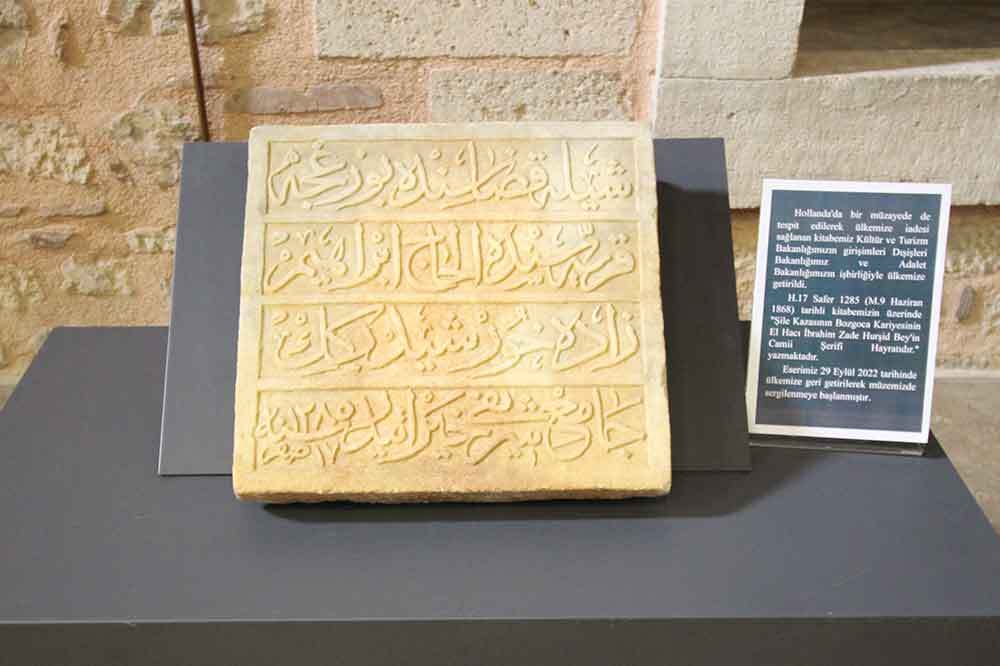 شيله قضاسنده بوزغجه
قريه سنده الحاج ابراهيم
زاده خورشيد بك
جامع شريفى خيراتيدر
١٧ صفر ١٢٨٥
Hollanda'da bir müzayede de
tespit edilerek ülkemize iadesi
sağlanan kitabemiz Kültür ve Turizm
Bakanlığımızın girişimleri Dışişleri
Bakanlığımız ve Adalet
Bakanlığımızın işbirliğiyle ülkemize
getirildi.
H.17 Safer 1285 (M.9 Haziran
1868) tarihli kitabemizin üzerinde
"Şile Kazasının Bozgoca Kariyesinin
El Hacı İbrahim Zade Hurşid Bey'in
Camii Şerifi Hayratıdır."
yazmaktadır.
Eserimiz 29 Eylül 2022 tarihinde
ülkemize geri getirilerek müzemizde
sergilenmeye başlanmıştır.